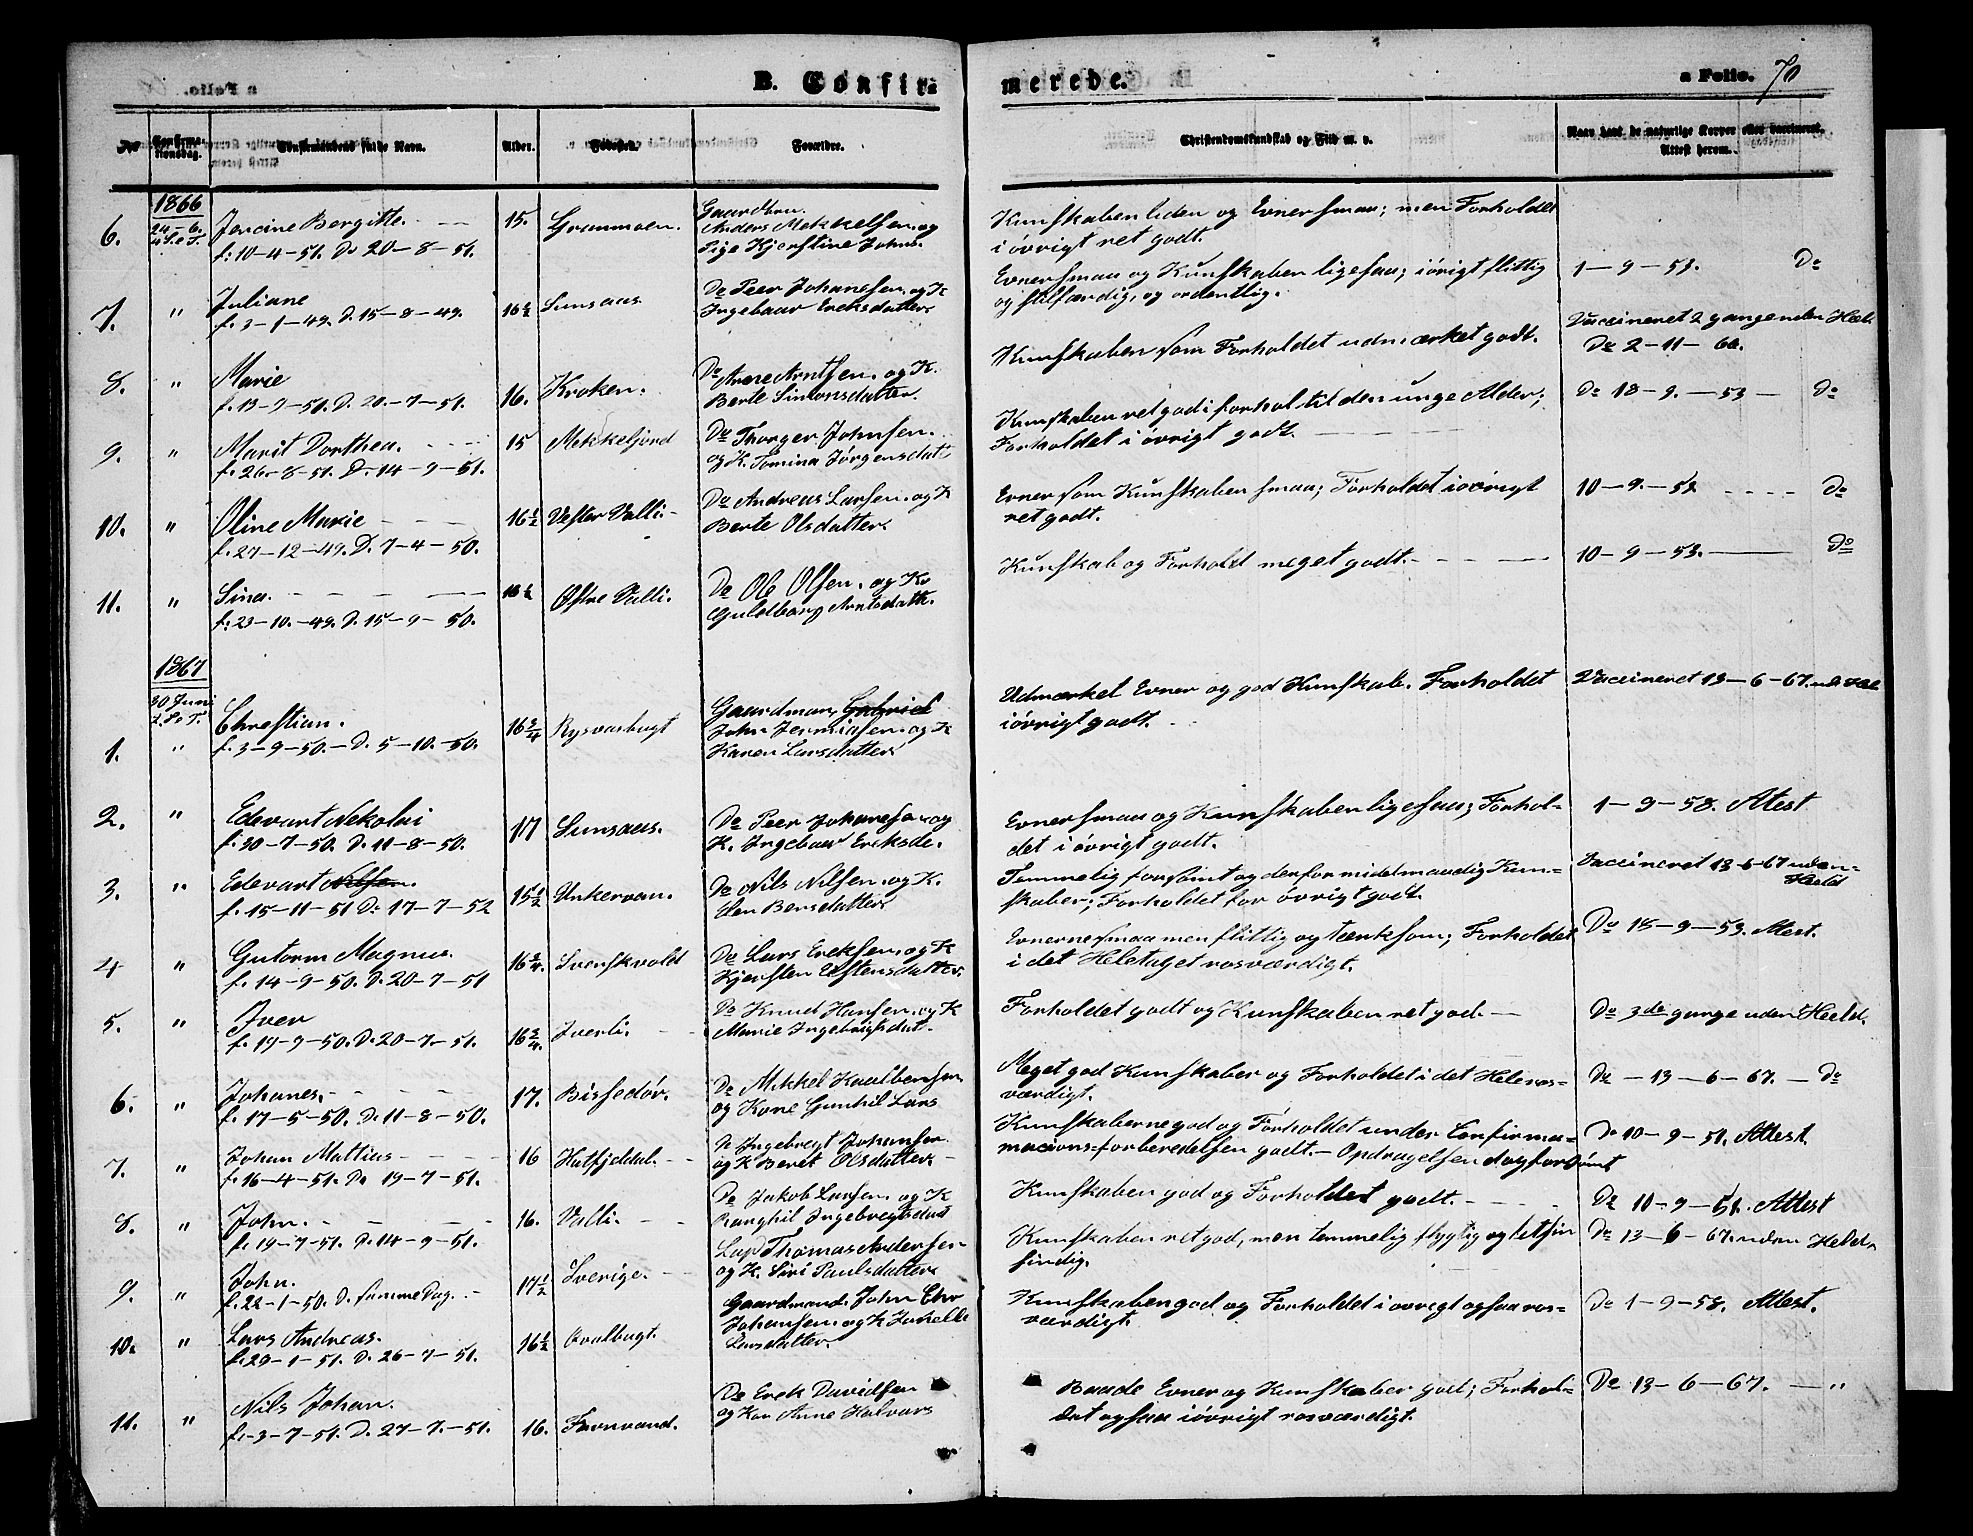 B. Confir-
merede.
a Folio. 70
No
Confirmationsdag.
Confirmandens fulde Navn.
Alder.
Fødested.
Forældre.
Christendomskundskab og Flid m. v.
Naar havt de naturlige Kopper eller vaccineret.
Attest herom.
1866
6. 24-6. Bergitte. 15. Grannmoen. Gaardbru.
Anders Mekkelsen. og
f: 10-4-51. Do 20-8-51.
Kunskaben liden og Evner smaa; men Forholdet
i øvrigt ret godt.
7. " Juliane 16½ Sunsaas Do Peer Johanesen. og K
f. 3-1-49. D. 15-8-49. Ingebaar Ereksdatter.
Evner smaa og Kunskaben ligesaa; i øvrigt flittig
og stilfærdig, og ordentlig.
1-9-53. Do
8. " Marie 16. Kroken. Do Arne Arntsen. og K.
f. 13-2-51. D. 20-7-51. Berte Simonsdatter.
Kunskaben som Forholdet udmærket godt.
Vaccineret 2 gange uden Hel.
Do 2-11-60.
9. " Marit Dorthea. 15 Mekkeljord Do Thorger Johnsen.
f. 26-8-51. D. 14-9-51. og K. Tomina Jørgensdat
Kunskaben ret god i forhol til den unge Alder;
Forholdet i øvrigt godt.
Do 18-9-53 - Do
10. " Oline Marie 16½ Vester Valli Do Andreas Larsen. og K
f. 27-12-49. D. 7-4-50. Berte Olsdatter.
Evner som Kunskaben smaa; Forholdet i øvrigt
ret godt.
10-9-52 Do
11. " Sina. 16½ Østre Valli. Do Ole Olsen. og K
f: 23-10-49. D. 15-9-50. Guldborg Arntsdatt.
Kunskab og Forhold meget godt.
10-9-53. Do
1867
30 Juni
1. " Chrestian. 16¾ Rysvasbugt Gaardman Gabriel
John Jermiasen. og K
f. 3-9-50. - D. 5-10-50. Karen Larsdatter
Udmærket Evner og god Kunskab. Forholdet
i øvrigt godt.
Vaccineret 13-6-67.
2. " Edevart Nekolai 17 Sunsaas. Do Peer Johanesen og
f. 20-7-50. D. 11-8-50. K. Ingebaar Ereksdr.
Evner smaa og Kunskaben ligesaa; Forhol-
det i øvrigt godt.
1-9-58. Atest
3. " Edevart Nilsen. 15½ Unkervan. Do Nils Nilsen. og K.
f. 15-11-51 Do 17-7-52 Elen Bensdatter
Temmelig forsømt og derfor midelmaadig Kun-
skaber; Forholdet for øvrigt godt.
Vaccineret 13-6-67 uden
Held
4 " Gutorm Magnus. 16¾. Svenskvold Do Lars Ereksen. og K
f. 14-9-50. D. 20-7-51 Kjersten Elstensdatter.
Evnerne smaa men flittig og tænksom; Forholdet
i det Heletaget rosværdigt.
Do 18-9-53. Atest.
5. " Iver 16¾. Iverli. Do Knud Hansen. og K
f. 19-9-50. D. 20-7-51. Marie Ingebrigtsdat.
Forholdet godt og Kunskaben ret god.
Do 3de gange uden Held.
6. " Johanes. 17. Bissedør. Do Mikkel Kaalbensen
f. 17-5-50. D. 11-8-50. og Kone Gunhil Lars
Meget god Kunskaber og Forholdet i det Heleros-
værdigt.
Do - 13-6-67. - Do
7. " Johan Mattias 16 Hatfjeldal. Do Ingebregt Johansen
f. 16-4-51. Do 19-7-51. og K Beret Olsdatter.
Kunskaberne god og Forholdet under Confirma-
macionsforberedelsen godt. - Opdragelsen dog forsømt
Do 10-9-51. Attest
8. " John. 16. Valli. Do Jakob Larsen og K
f. 19-7-51. D. 14-9-51. Ranghil Ingebregtsdat
Kunskaben god og Forholdet godt.
Do 10-9-51. Attest
9. " John. 17½ Sverige. Lap Thomas Andersen
f. 22-1-50. D. samme Dag. og K. Siri Paulsdatter
Kunskaben ret god, men temmelig flygtig og letsin
sindig.
Do 13-6-67. uden Held.
10. " Lars Andreas. 16½ Ovalbugt. Gaardmand. John Chr
Johansen. og K
f. 29-1-51. D. 26-7-51. Larsdatter.
Kunskaben god og Forholdet i øvrigt ogsaa ros-
værdigt.
Do 1-9-58. Attest.
11. " Nils Johan. 16. Farnvand. Do Erek Davidsen
f. 3-7-51. D. 27-7-51. og Kon Anne Halvars
Baade Evner og Kunskaber god; Forhol-
det ogsaa i øvrigt rosværdigt.
Do 13-6-67. - "